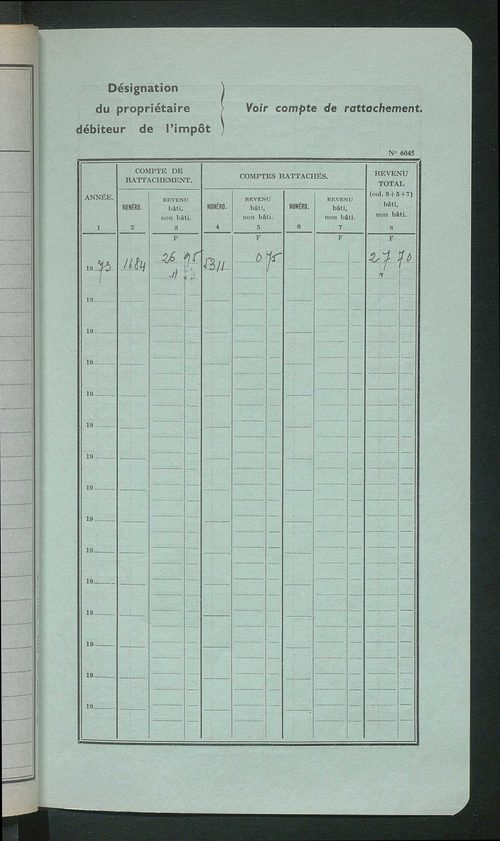 Désignation
du propriétaire
débiteur de l'impôt
Voir compte de rattachement.
N° 6045
ANNÉE.
1
COMPTE DE
RATTACHEMENT.
NUMÉRO.
2
REVENU
bâti,
non bâti.
3
F
COMPTES RATTACHÉS.
NUMÉRO.
4
REVENU
bâti,
non bâti.
5
F
NUMÉRO.
6
REVENU
bâti,
non bâti.
7
F
REVENU
TOTAL
(col. 3+5+7)
bâti,
non bâti.
8
F
1973 1684 26 95 5311 0 75 27 70
19
19
19
19
19
19
19
19
19
19
19
19
19
19